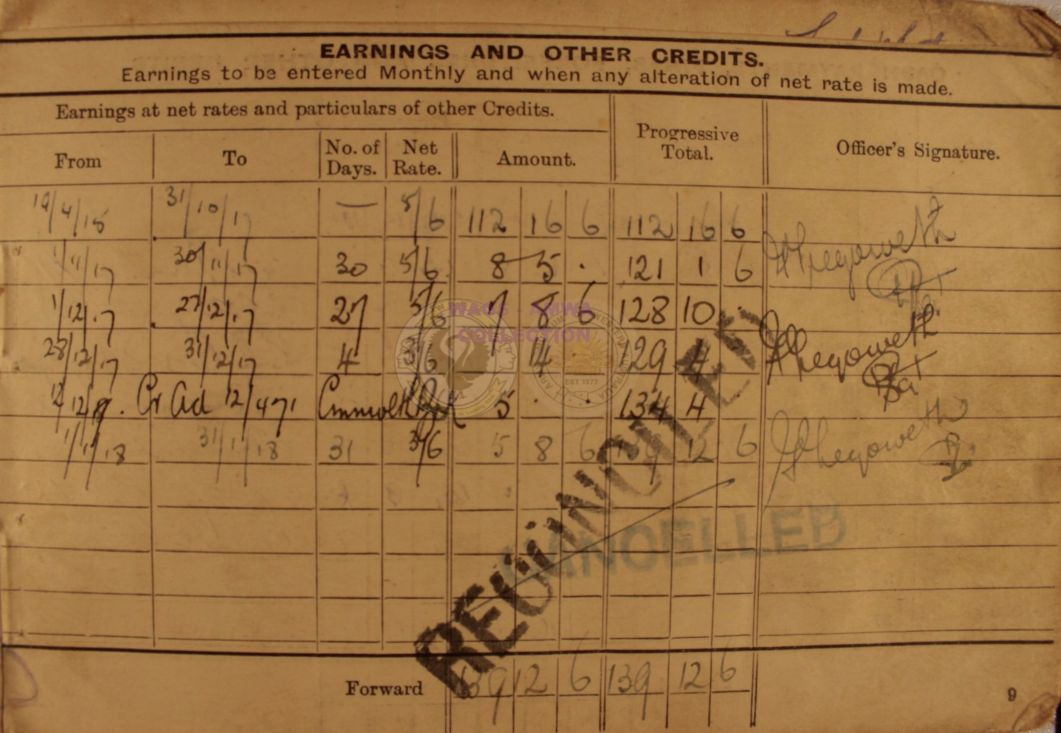 EARNINGS AND OTHER CREDITS.
Earnings to be entered Monthly and when any alteration of net rate is made.
Earnings at net rates and particulars of other Credits.
Progressive Total.
Officer's Signature.
From To No. of Days. Net Rate. Amount.
31/10/17 — 5/6 112 16 6 112 16 6
1/11/17 30/11/17 30 5/6 8 5 . 121 1 6
1/12/17 27/12/17 27 5/6 7 8 6 128 10
28/12/17 31/12/17 4 3/6 14 129 4
Cr Ad 12/471 5 . . 134 4
1/1/18 31/1/18 31 3/6 5 8 6 139 12 6
WAGS ANWA
COLLECTION
RECONCILED
CANCELLED
Forward 139 12 6 139 12 6
9